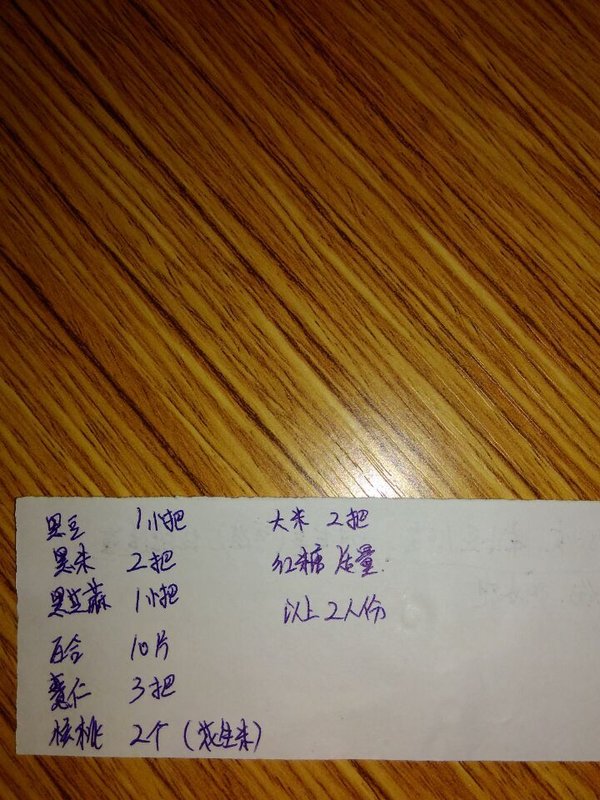 黑豆 1小把
黑米 2把
黑芝麻 1小把
百合 10片
薏仁 3把
核桃 2个 (花生米)
大米 2把
红糖 适量.
以上2人份